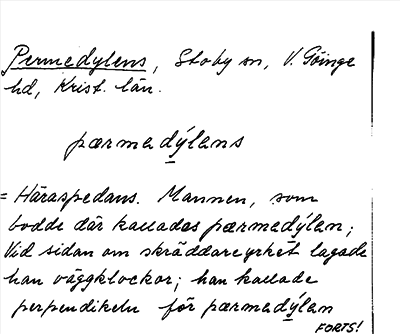 Permedylens, Stoby sn, V. Göinge
hd, Krist. län.
pærmadýlens
= Häraspedans. Mannen, som
bodde där kallades pærmadýlen;
Vid sidan om skräddareyrket lagade
han väggklockor; han kallade
perpendikeln för pærmadýlen
FORTS!